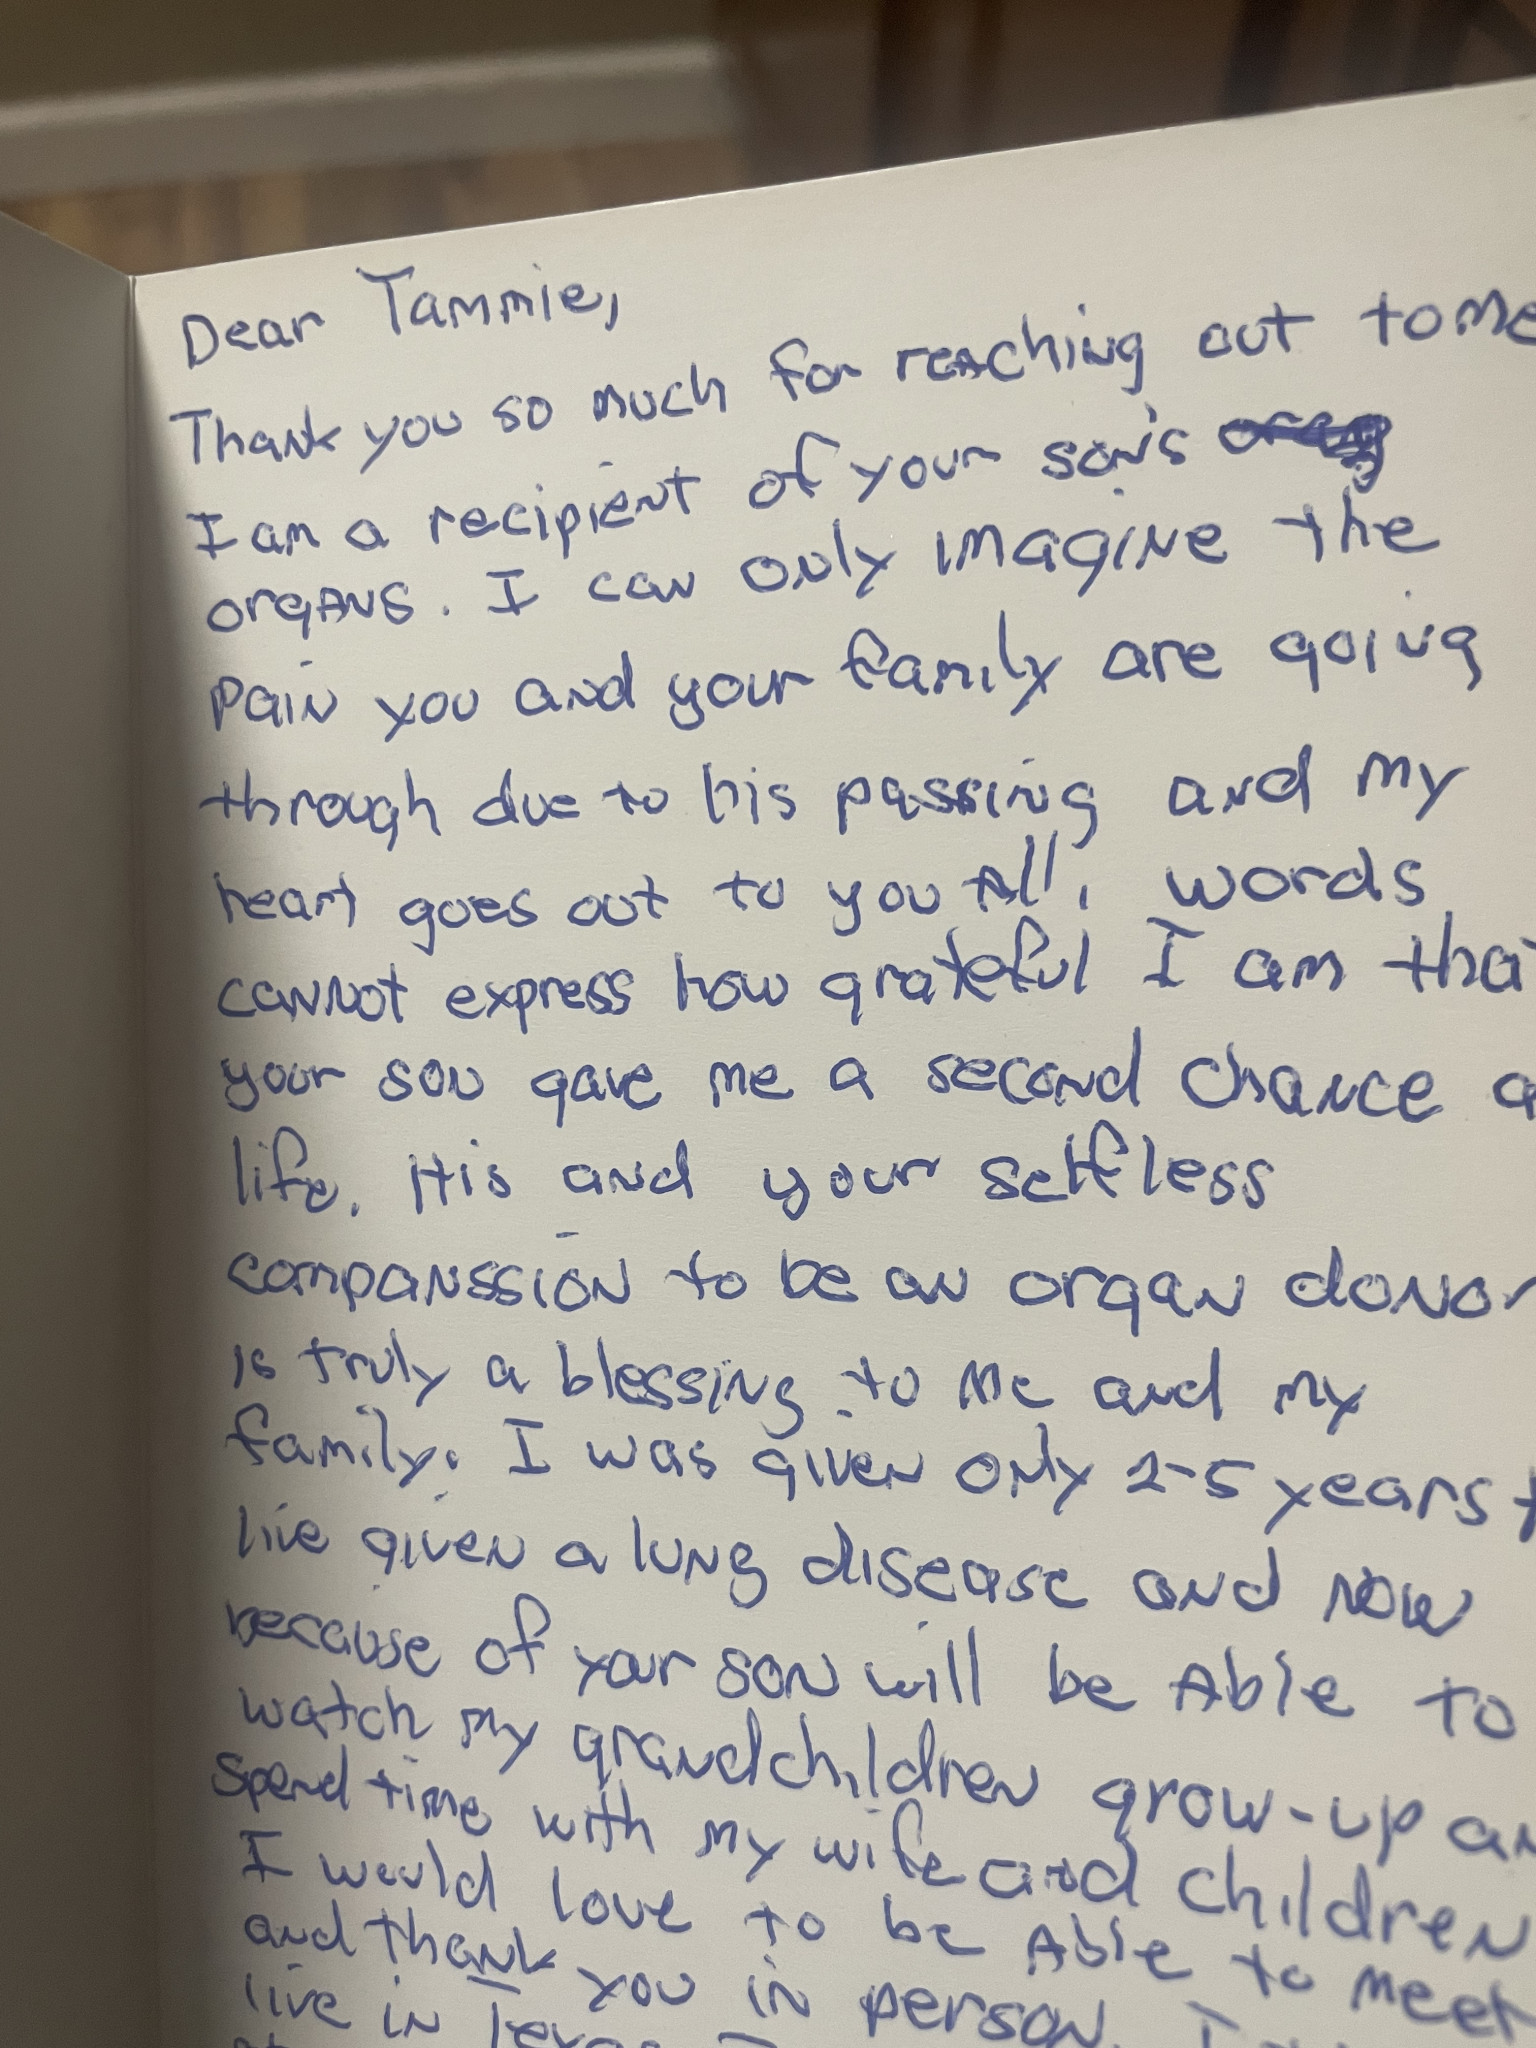 Dear Tammie,
Thank you so much for reaching out to me
I am a recipient of your son's
organs. I can only imagine the
pain you and your family are going
through due to his passing and my
heart goes out to you All. words
cannot express how grateful I am that
your son gave me a second chance
life. His and your selfless
companssion to be an organ donor
is truly a blessing to me and my
family. I was given only 2-5 years
live given a lung disease and now
because of your son will be Able to
watch my grandchildren grow-up
spend time with my wife and children
I would love to be Able to meet
and thank you in person.
live in Texas